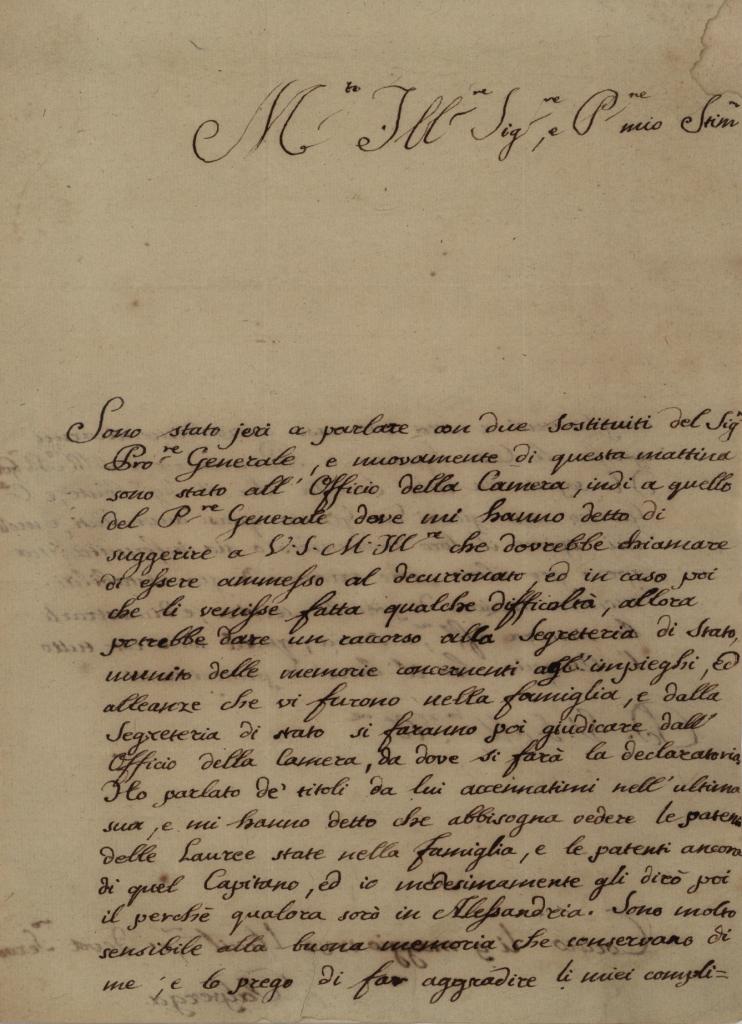 M.to Ill.re Sig.re, e P.ne mio Stim
Sono stato jeri a parlare con due sostituiti del Sig.r
Pro.re Generale, e nuovamente di questa mattina
sono stato all' Officio della Camera, indi a quello
del P.re Generale dove mi hanno detto di
suggerire a V. S. M. Ill.re che dovrebbe chiamare
di essere ammesso al decurionato, ed in caso poi
che li venisse fatta qualche difficoltà, allora
potrebbe dare un raccorso alla Segreteria di Stato,
munito delle memorie concernenti agl' impieghi, ed
alleanze che vi furono nella famiglia, e dalla
Segreteria di stato si faranno poi giudicare dall'
Officio della Camera, da dove si farà la declaratoria,
Ho parlato de' titoli da lui accennatimi nell' ultima
sua, e mi hanno detto che abbisogna vedere le paten
delle Lauree state nella famiglia, e le patenti ancora
di quel Capitano, ed io medesimamente gli dirò poi
il perchè qualora sarò in Alessandria. Sono molto
sensibile alla buona memoria che conservano di
me, e lo prego di far aggradire li miei compli=